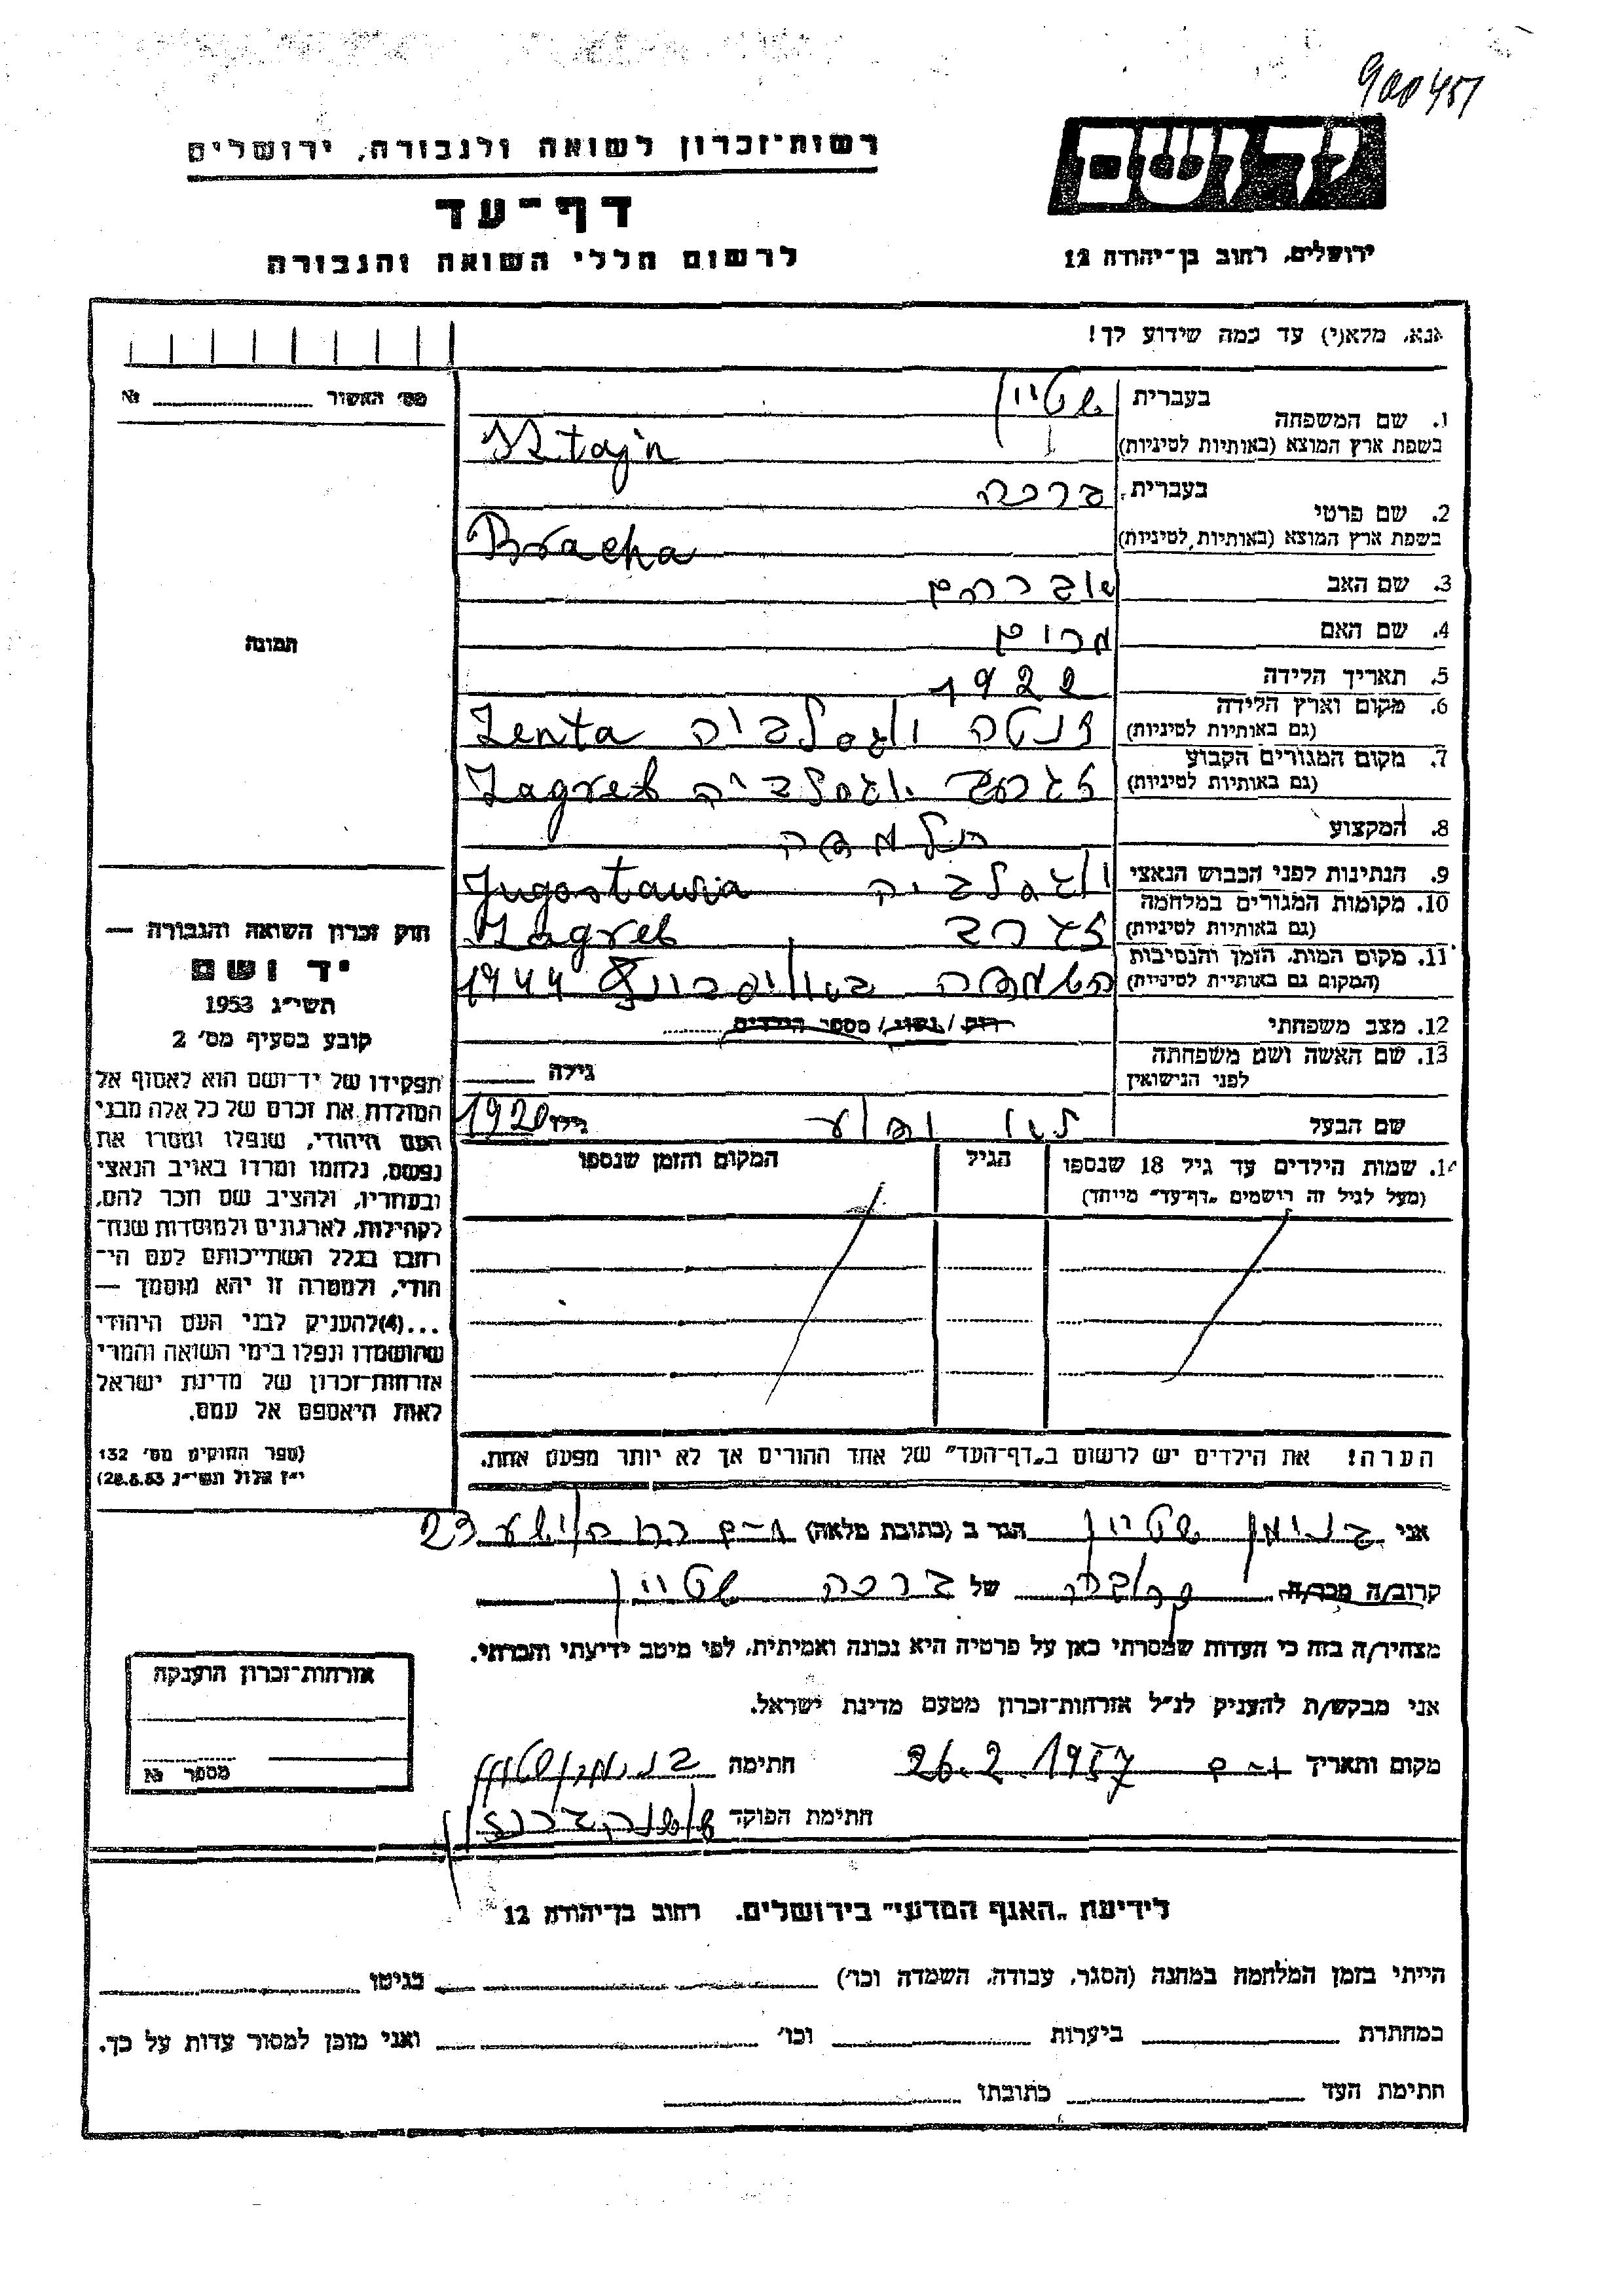 900451
יד ושם
רשות־זכרון לשואה ולגבורה, ירושלים
דף־עד
לרשום חללי השואה והגבורה
ירושלים, רחוב בן־יהודה 12
אנא, מלא(י) עד כמה שידוע לך!
מס׳ האשור № 
1. שם המשפחה
בעברית שטיין
בשפת ארץ המוצא (באותיות לטיניות) Sztajn
2. שם פרטי
בעברית ברכה
בשפת ארץ המוצא (באותיות לטיניות) Bracha
3. שם האב אברהם
4. שם האם מרים
5. תאריך הלידה 1922
6. מקום וארץ הלידה
(גם באותיות לטיניות) זנטה יוגסלביה Zenta
7. מקום המגורים הקבוע
(גם באותיות לטיניות) זגרב יוגסלביה Zagreb
8. המקצוע תלמידה
9. הנתינות לפני הכבוש הנאצי יוגסלביה Jugoslawia
10. מקומות המגורים במלחמה
(גם באותיות לטיניות) זגרב Zagreb
11. מקום המות, הזמן והנסיבות
(המקום גם באותיות לטיניות) 1944
12. מצב משפחתי רוק / נשוי / מספר הילדים
13. שם האשה ושם משפחתה
לפני הנישואין גילה
שם הבעל ילוד 1920
14. שמות הילדים עד גיל 18 שנספו
(מעל לגיל זה רושמים „דף־עד״ מיוחד)
הגיל
המקום והזמן שנספו
הערה! את הילדים יש לרשום ב„דף־העד״ של אחד ההורים אך לא יותר מפעם אחת.
תמונה
חוק זכרון השואה והגבורה —
יד ושם
תשי״ג 1953
קובע בסעיף מס׳ 2
תפקידו של יד־ושם הוא לאסוף אל
המולדת את זכרם של כל אלה מבני
העם היהודי, שנפלו ומסרו את
נפשם, נלחמו ומרדו באויב הנאצי
ובעוזריו, ולהציב שם וזכר להם,
לקהילות, לארגונים ולמוסדות שנח־
רבו בגלל השתייכותם לעם הי־
הודי, ולמטרה זו יהא מוסמך —
...(4)להעניק לבני העם היהודי
שהושמדו ונפלו בימי השואה והמרי
אזרחות־זכרון של מדינת ישראל
לאות היאספם אל עמם.
(ספר החוקים מס׳ 132
י״ז אלול תשי״ג 28.8.53)
אני בנימין שטיין הגר ב (כתובת מלאה) 23
קרוב/ה מכר/ה של ברכה שטיין
מצהיר/ה בזה כי העדות שמסרתי כאן על פרטיה היא נכונה ואמיתית, לפי מיטב ידיעתי והכרתי.
אני מבקש/ת להעניק לנ״ל אזרחות־זכרון מטעם מדינת ישראל.
מקום ותאריך 26.2.1957 חתימה בנימין שטיין
חתימת הפוקד
אזרחות־זכרון הוענקה
מספר №
לידיעת „האגף המדעי״ בירושלים, רחוב בן־יהודה 12
הייתי בזמן המלחמה במחנה (הסגר, עבודה, השמדה וכו׳) בגיטו
במחתרת ביערות וכו׳ ואני מוכן למסור עדות על כך.
חתימת העד כתובתו